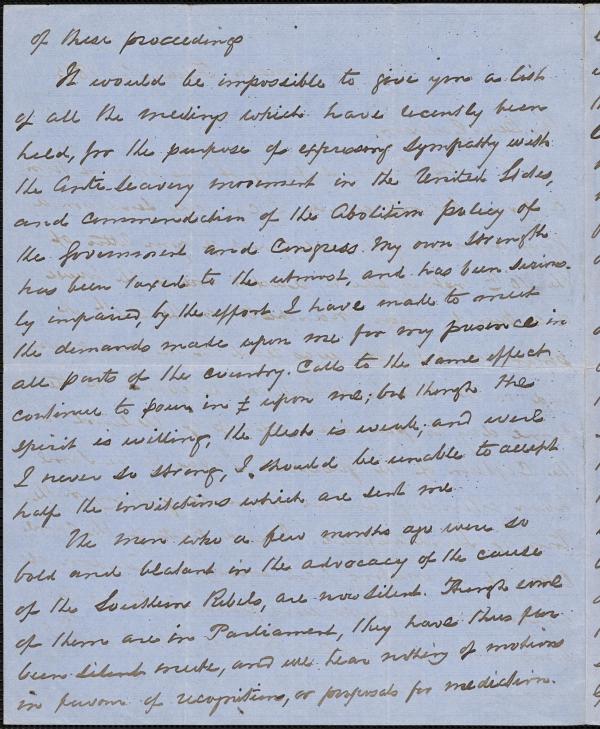 of these proceedings
It would be impossible to give you a list
of all the meetings which have recently been
held, for the purpose of expressing sympathy with
the Anti-Slavery movement in the United States,
and commendation of the Abolition policy of
the Government and Congress. My own strength
has been taxed to the utmost, and has been serious-
ly impaired, by the effort I have made to meet
the demands made upon me for my presence in
all parts of the country. Calls to the same effect
continue to pour in upon me; but though the
spirit is willing, the flesh is weak; and were
I never so strong, I should be unable to accept
half the invitations which are sent me
The men who a few months ago were so
bold and blatant in the advocacy of the cause
of the Southern Rebels, are now silent. Though some
of them are in Parliament, they have thus far
been silent mute, and we hear nothing of motions
in favour of recognition, or proposals for mediation.